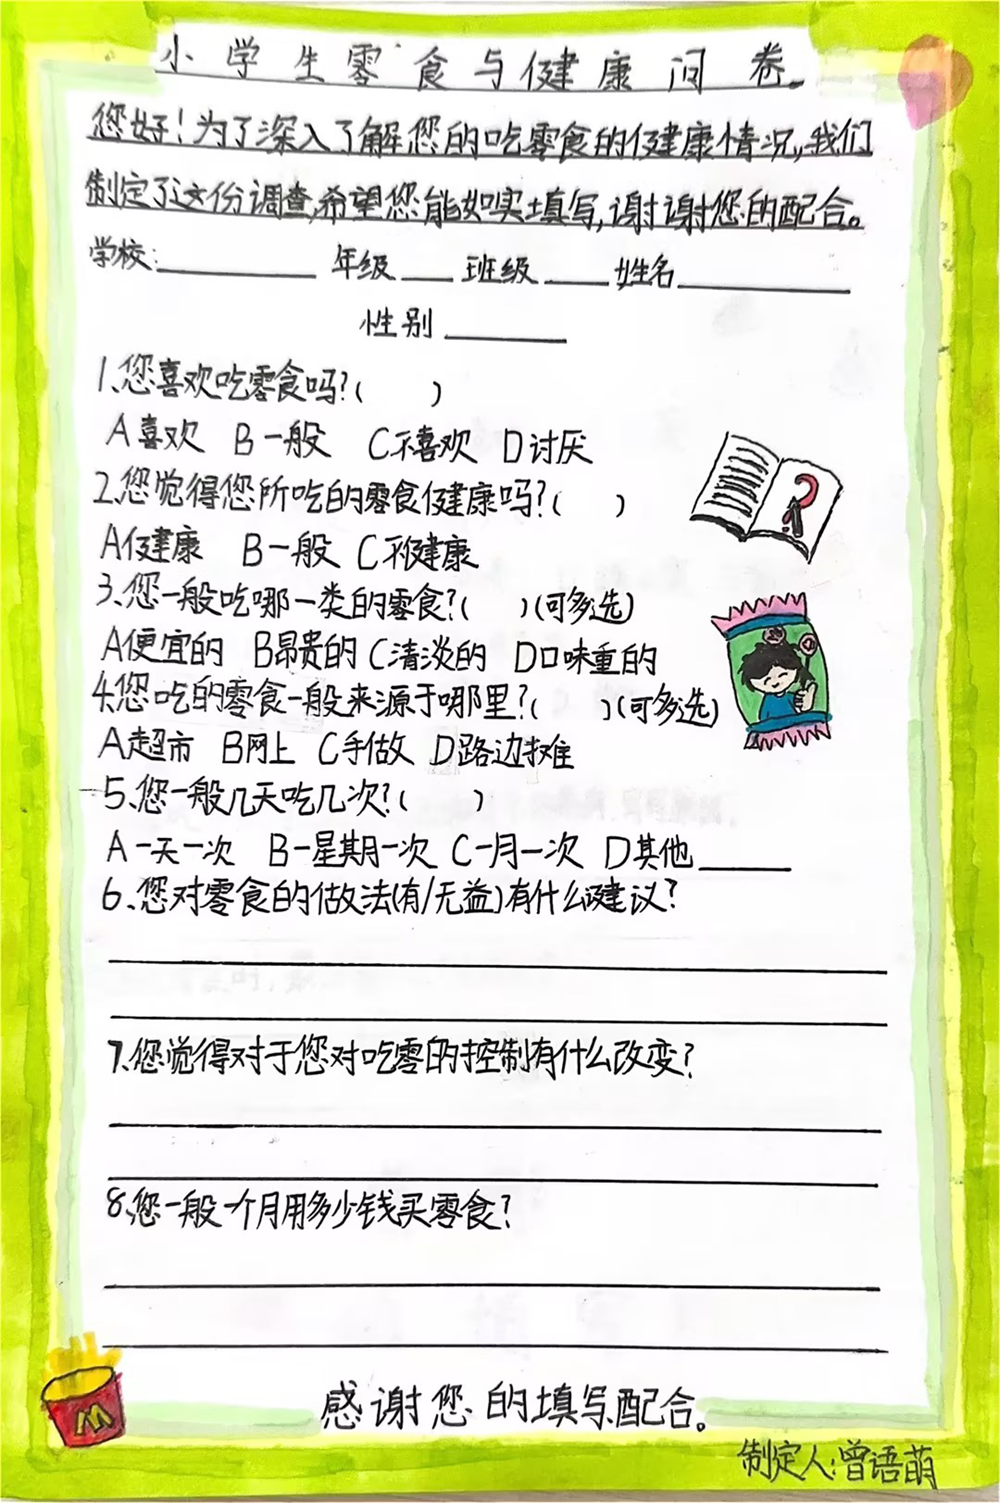 小学生零食与健康问卷。
您好！为了深入了解您的吃零食的健康情况，我们
制定了这份调查，希望您能如实填写，谢谢您的配合。
学校：__________ 年级____ 班级_____ 姓名___________
性别________
1、您喜欢吃零食吗？（ ）
A喜欢 B一般 C不喜欢 D讨厌
2、您觉得您所吃的零食健康吗？（ ）
A健康 B一般 C不健康
3、您一般吃哪一类的零食？（ ）（可多选）
A便宜的 B昂贵的 C清淡的 D口味重的
4、您吃的零食一般来源于哪里？（ ）（可多选）
A超市 B网上 C手做 D路边摊
5、您一般几天吃几次？（ ）
A一天一次 B一星期一次 C一月一次 D其他______
6、您对零食的做法（有/无益）有什么建议？
7、您觉得对于您对吃零的控制有什么改变？
8、您一般一个月用多少钱买零食？
感谢您的填写配合。
制定人：曾语萌